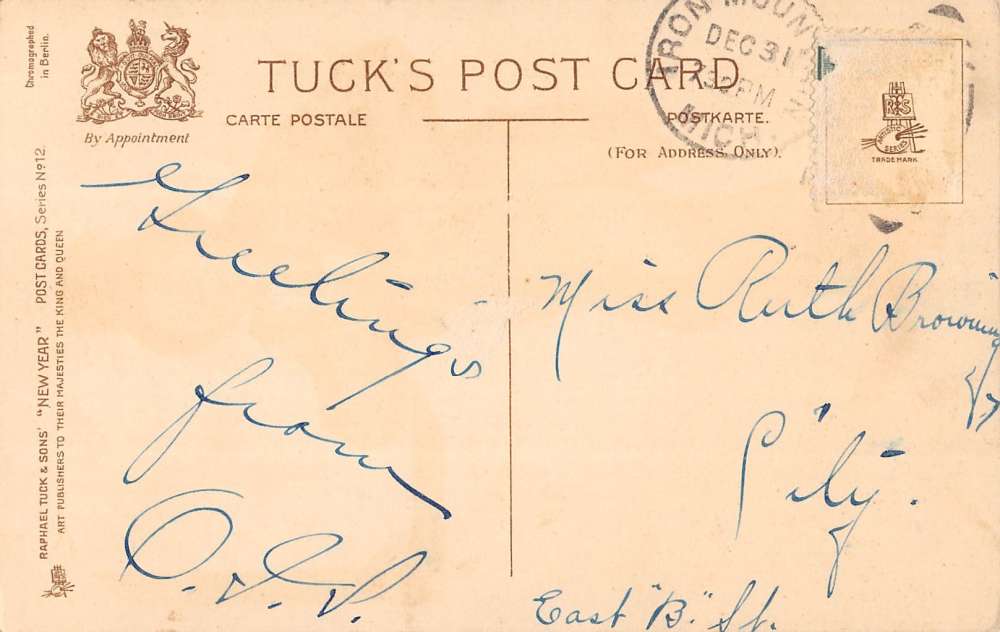 Chromographed
in Berlin.
By Appointment
TUCK'S POST CARD
CARTE POSTALE
POSTKARTE.
(FOR ADDRESS ONLY).
IRON MOUN
DEC 31
30 PM
MICH.
ARTISTIC
SERIES
TRADE MARK
RAPHAEL TUCK & SONS' "NEW YEAR" POST CARDS, Series No 12.
ART PUBLISHERS TO THEIR MAJESTIES THE KING AND QUEEN
Greetings
from
Miss Ruth Browning
City.
East "B." St.